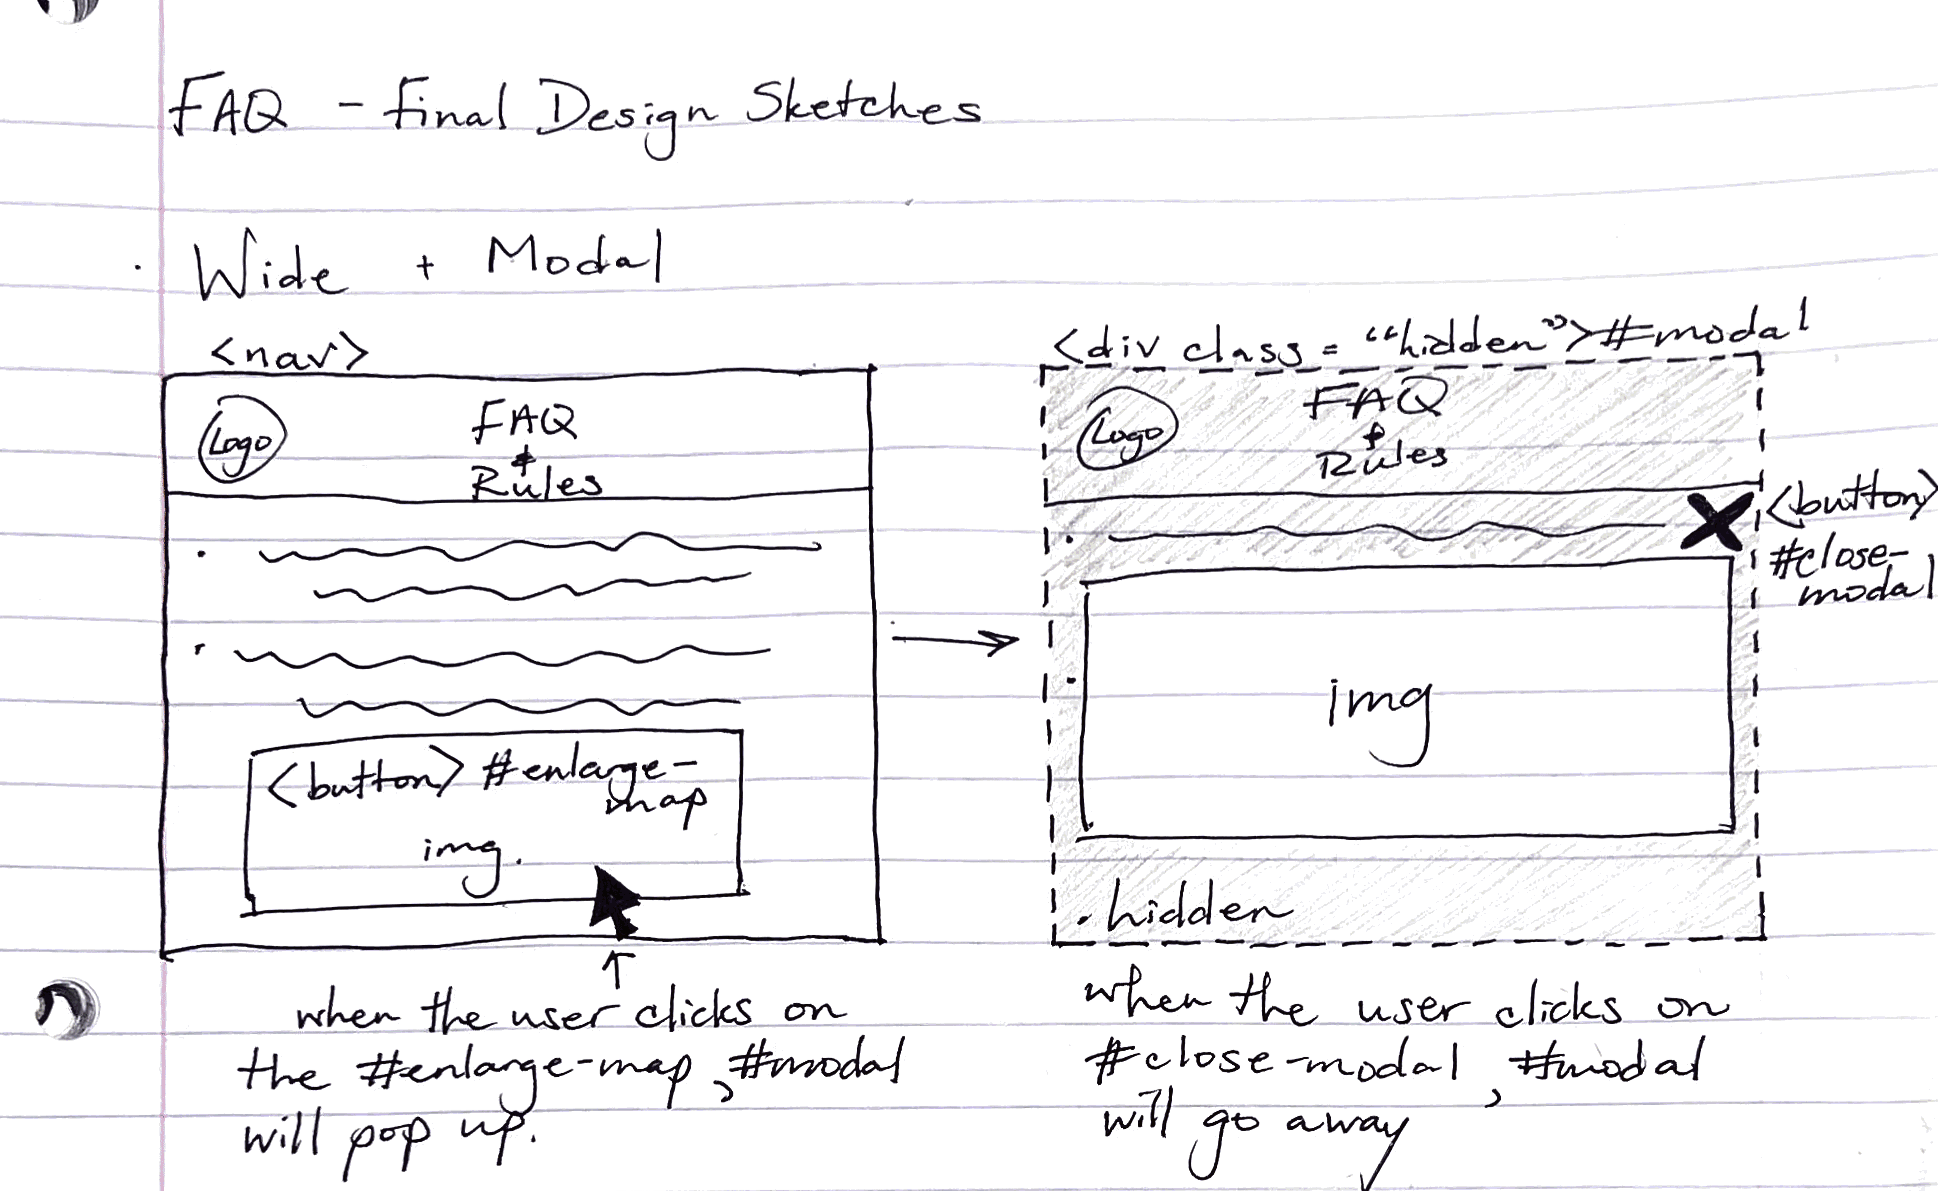 FAQ - Final Design Sketches
Wide + Modal
<nav>
Logo
FAQ
&
Rules
<button> #enlarge-
map
img.
when the user clicks on
the #enlarge-map, #modal
will pop up.
<div class = "hidden">#modal
Logo
FAQ
&
Rules
<button>
#close-
modal
img
.hidden
when the user clicks on
#close-modal, #modal
will go away